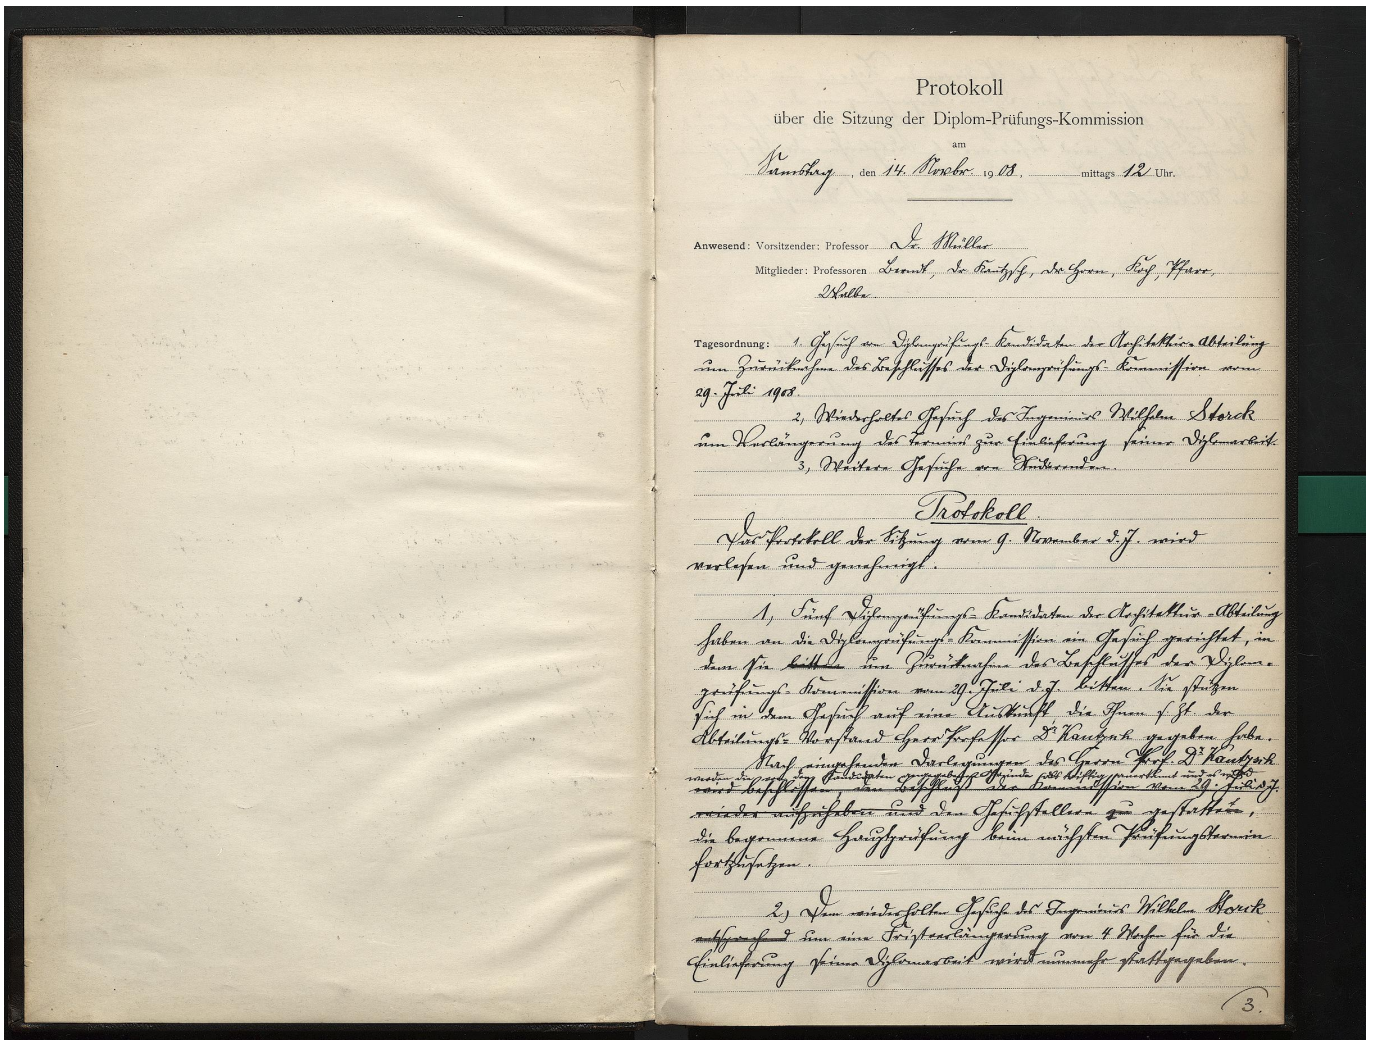 Protokoll
über die Sitzung der Diplom-Prüfungs-Kommission
am
Samstag, den 14. Novbr. 1908, mittags 12 Uhr.
Anwesend: Vorsitzender: Professor Dr. Müller
Mitglieder: Professoren Berndt, Dr Kautzsch, Dr Horn, Koch, Pfarr,
Walbe.
Tagesordnung: 1. Gesuch von Diplomprüfungs-Kandidaten der Architektur-Abteilung
um Zurücknahme des Beschlusses der Diplomprüfungs-Kommission vom
29. Juli 1908.
2, Wiederholtes Gesuch des Ingenieurs Wilhelm Storck
um Verlängerung des Termins zur Einlieferung seiner Diplomarbeit.
3, Weitere Gesuche von Studierenden.
Protokoll.
Das Protokoll der Sitzung vom 9. November d. J. wird
verlesen und genehmigt.
1, Fünf Diplomprüfungs-Kandidaten der Architektur-Abteilung
haben an die Diplomprüfungs-Kommission ein Gesuch gerichtet, in
dem Sie bitten um Zurücknahme des Beschlusses der Diplom-
prüfungs-Kommission vom 29. Juli d. J. bitten. Sie stützen
sich in dem Gesuch auf eine Auskunft, die Ihnen s. Zt. der
Abteilungs-Vorstand Herr Professor Dr. Kautzsch gegeben habe.
Nach eingehenden Darlegungen des Herrn Prof. Dr. Kautzsch
werden die von den Kandidaten gegebenen Gründe als triftig anerkannt und es wird
wird beschlossen, den Beschluß der Kommission vom 29. Juli d. J.
wieder aufzuheben und den Gesuchstellern zu gestatten,
die begonnene Hauptprüfung beim nächsten Prüfungstermin
fortzusetzen.
2) Dem wiederholten Gesuche des Ingenieurs Wilhelm Storck
entsprechend um eine Fristverlängerung von 4 Wochen für die
Einlieferung seiner Diplomarbeit wird nunmehr stattgegeben.
3.